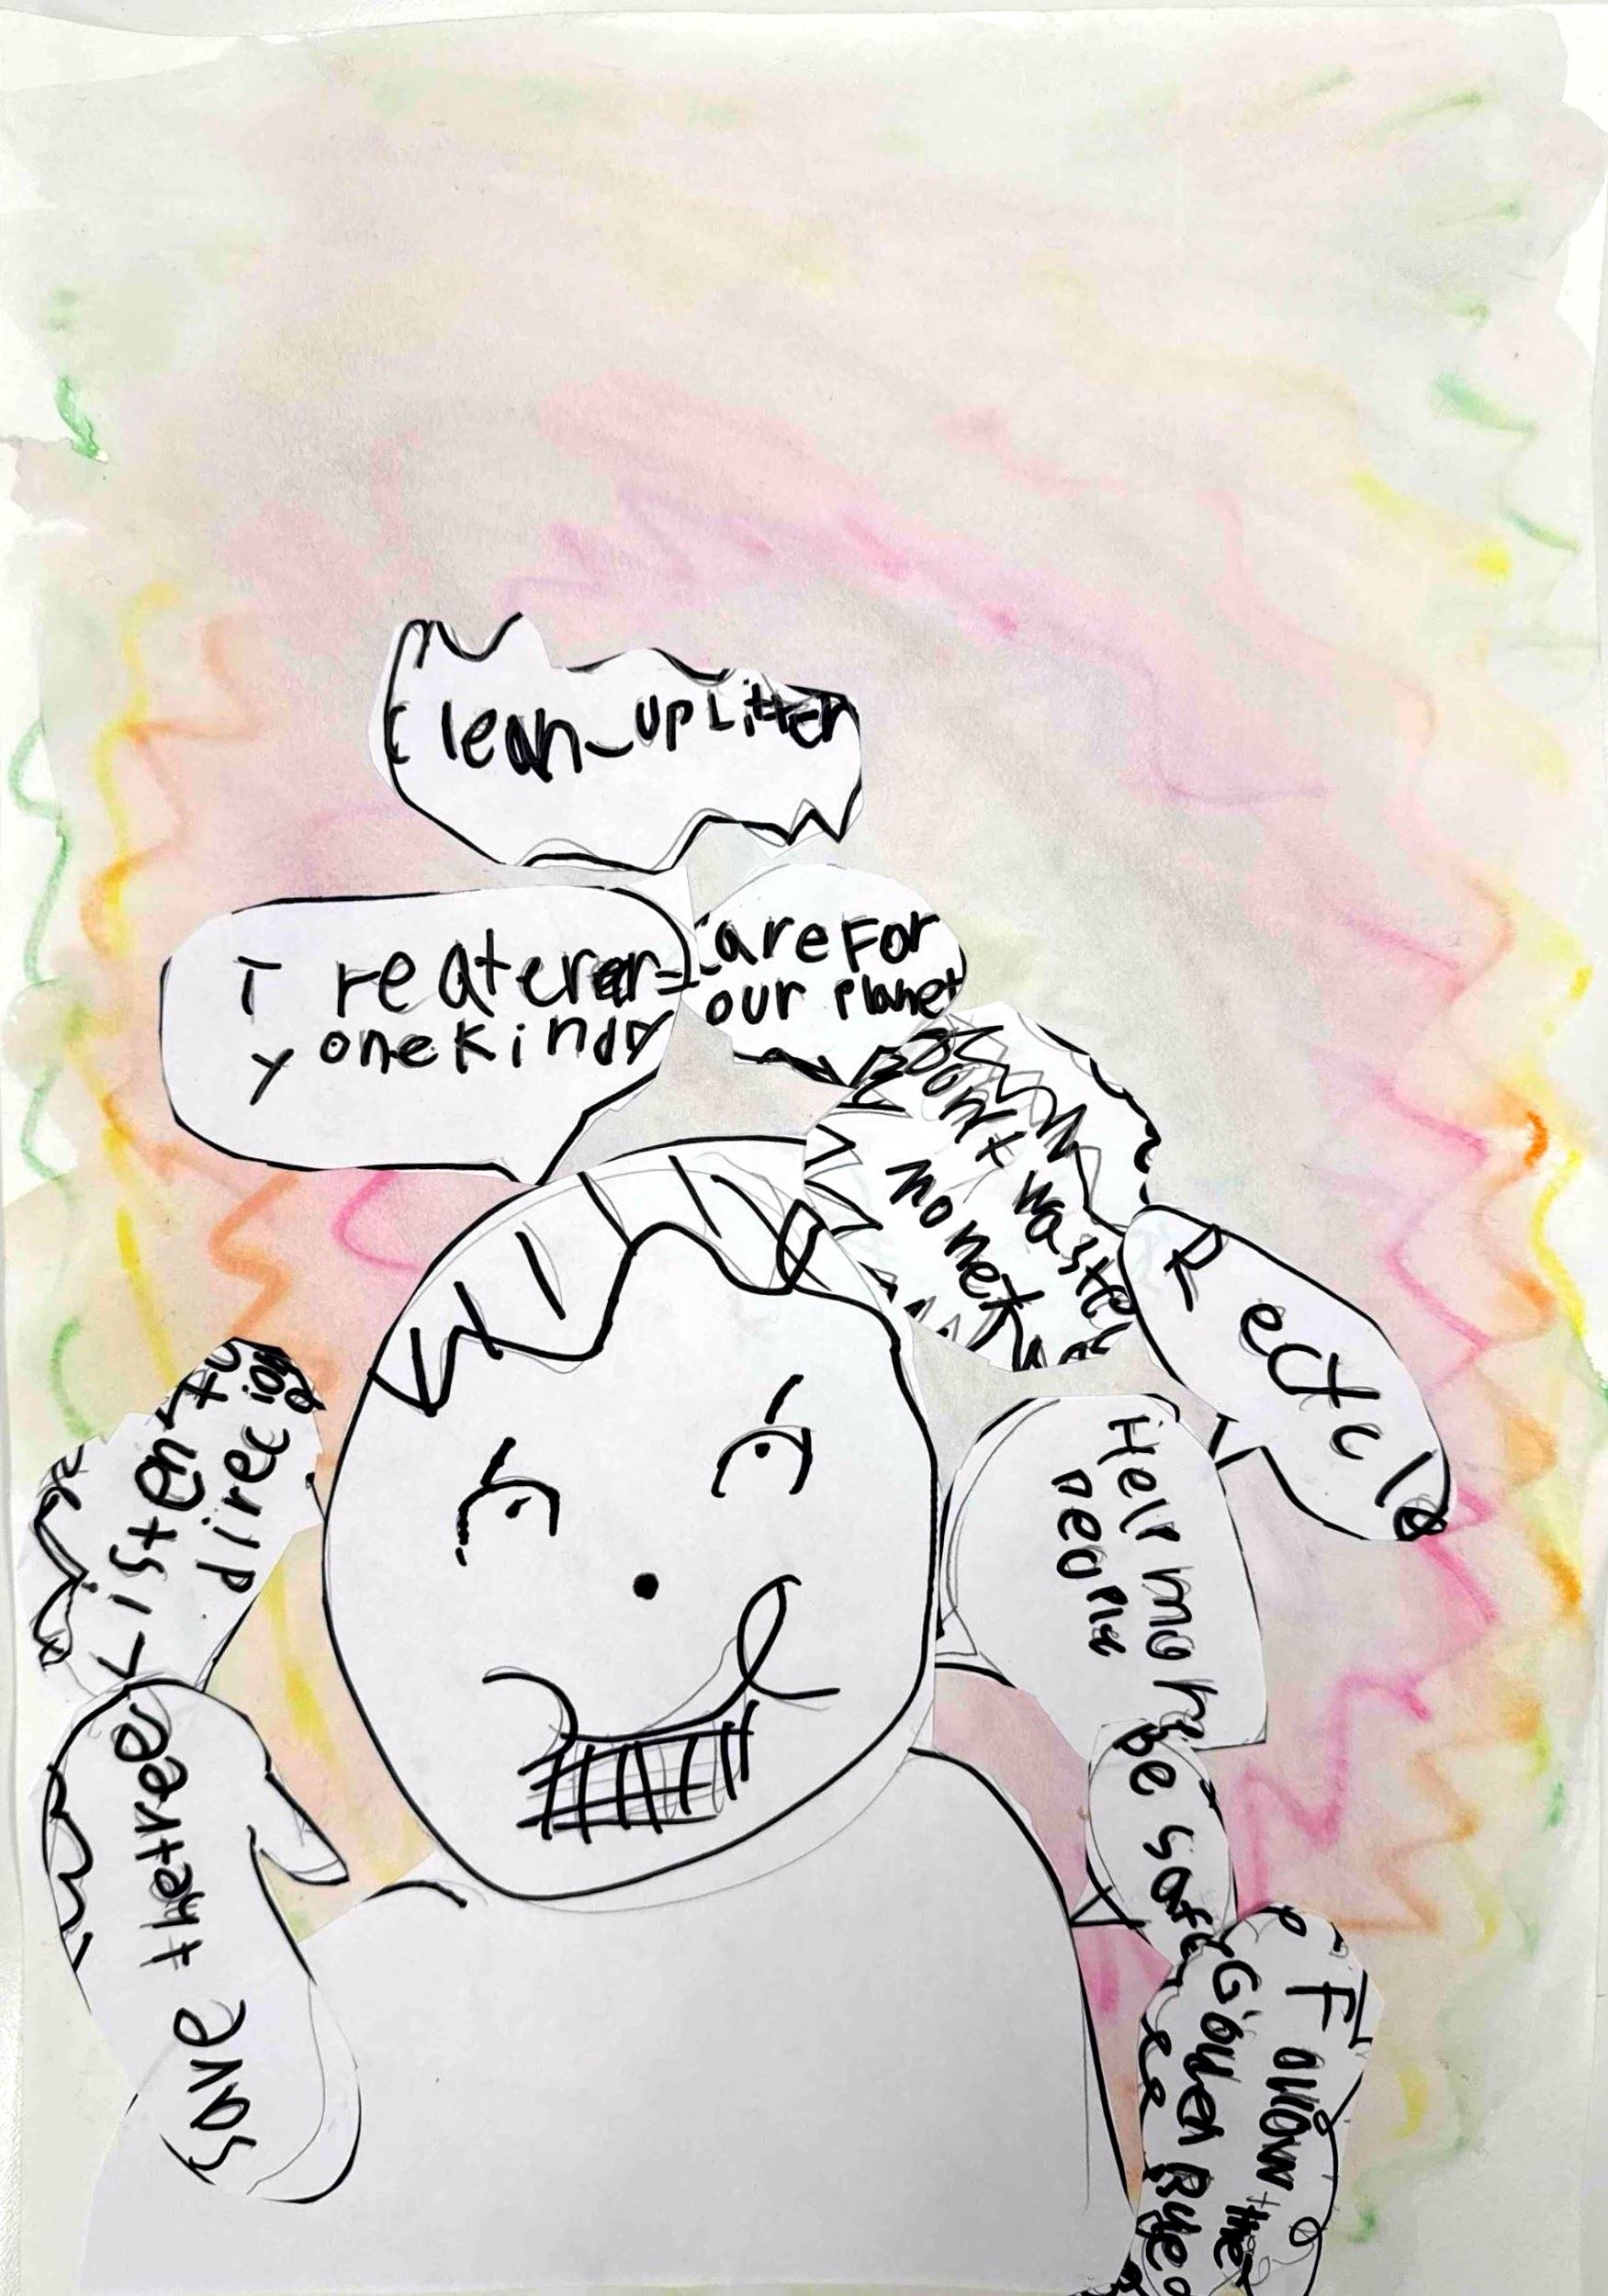 Clean-up Litter
Treatever-
yonekindly
Care For
our Planet
Dont waste
money
Recycle
Help more
people
Be safe
Follow the
Golden Rule
Listen to
direcion
save thetrees